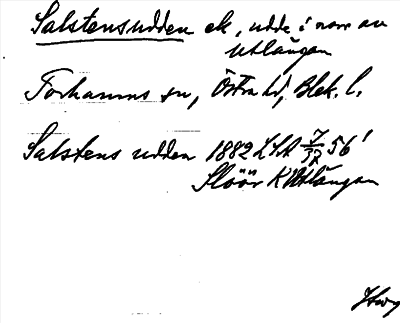 Salstensudden ek, udde i norr av
Utlängan
Torhamns sn, Östra hd, Blek. l.
Salstens udden 1882 LSA 56
Slöör K Utlängan